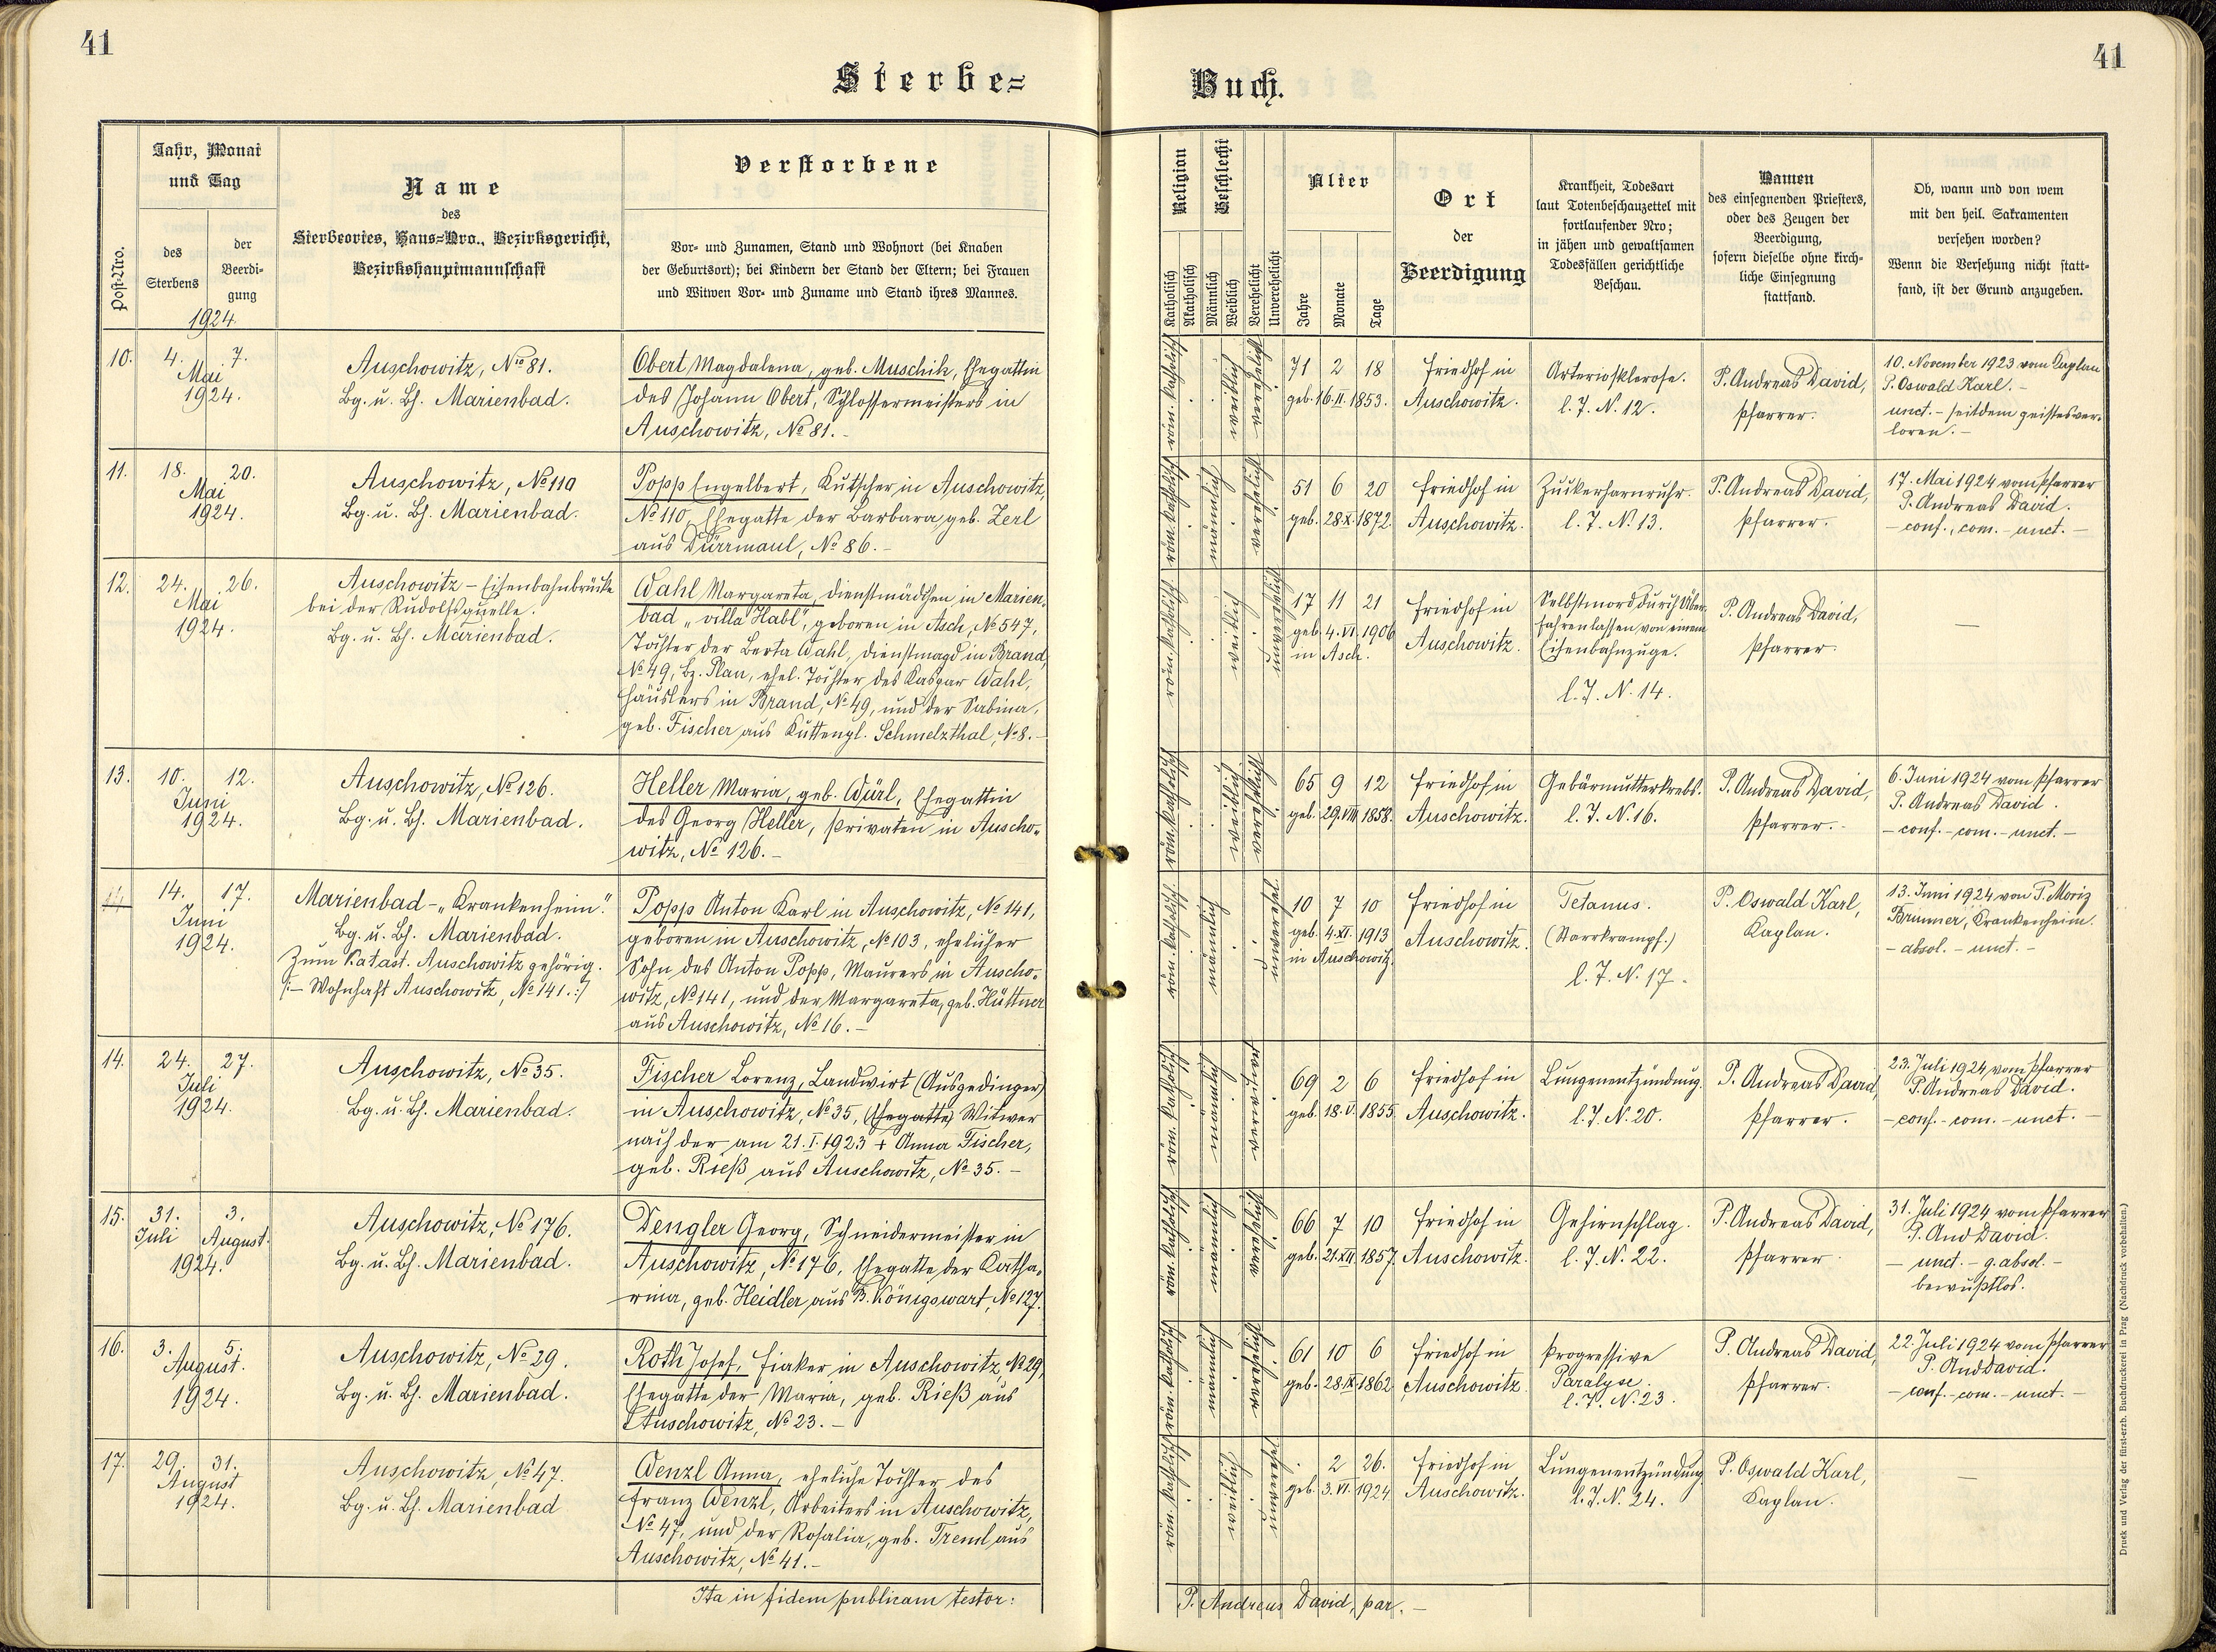 41
41
Sterbe=
Buch.
Post-Nro.
Jahr, Monat
und Tag
des
Sterbens
der
Beerdi-
gung
1924.
Name
des
Sterbeortes, Haus=Nro., Bezirksgericht,
Bezirkshauptmannschaft
Verstorbene
Vor- und Zunamen, Stand und Wohnort (bei Knaben
der Geburtsort); bei Kindern der Stand der Eltern; bei Frauen
und Witwen Vor- und Zuname und Stand ihres Mannes.
Religion
Katholisch
Akatholisch
Geschlecht
Männlich
Weiblich
Verehelicht
Unverehelicht
Alter
Jahre
Monate
Tage
Ort
der
Beerdigung
Krankheit, Todesart
laut Totenbeschauzettel mit
fortlaufender Nro;
in jähen und gewaltsamen
Todesfällen gerichtliche
Beschau.
Namen
des einsegnenden Priesters,
oder des Zeugen der
Beerdigung,
sofern dieselbe ohne kirch-
liche Einsegnung
stattfand.
Ob, wann und von wem
mit den heil. Sakramenten
versehen worden?
Wenn die Versehung nicht statt-
fand, ist der Grund anzugeben.
10.
4. 7.
Mai
1924.
Auschowitz, No 81.
Bg. u. Bh. Marienbad.
Obert Magdalena, geb. Muschik, Ehegattin
des Johann Obert, Schlossermeisters in
Auschowitz, No 81.-
röm. katholisch
weiblich
verehelicht
71 2 18
geb. 16. II. 1853.
Friedhof in
Auschowitz.
Arteriosklerose.
l. J. N. 12.
P. Andreas David,
Pfarrer.
10. November 1923 vom Kaplan
P. Oswald Karl.-
unct. - seitdem geistesver-
loren.-
11.
18. 20.
Mai
1924.
Auschowitz, No 110
Bg. u. Bh. Marienbad.
Popp Engelbert, Kutscher in Auschowitz,
No 110, Ehegatte der Barbara geb. Zerl
aus Dürrmaul, No 86.-
röm. katholisch
männlich
verehelicht
51 6 20
geb. 28. X. 1872.
Friedhof in
Auschowitz.
Zuckerharnruhr.
l. J. N. 13.
P. Andreas David,
Pfarrer.
17. Mai 1924 vom Pfarrer
P. Andreas David.
- conf., com. - unct. -
12.
24. 26.
Mai
1924.
Auschowitz - Eisenbahnbrücke
bei der Rudolfsquelle.
Bg. u. Bh. Marienbad.
Wahl Margareta, Dienstmädchen in Marien-
bad „villa Habl", geboren in Asch, No 547,
Tochter der Berta Wahl, Dienstmagd in Brand,
No 49, Bz. Plan, ehel. Tochter des Kaspar Wahl,
Häuslers in Brand, No 49, und der Sabina,
geb. Fischer aus Kuttenpl. Schmelzthal, No 8.-
röm. katholisch
weiblich
unverehelicht
17 11 21
geb. 4. VI. 1906
in Asch.
Friedhof in
Auschowitz.
Selbstmord durch Über-
fahrenlassen von einem
Eisenbahnzuge.
l. J. N. 14.
P. Andreas David,
Pfarrer.
—
13.
10. 12.
Juni
1924.
Auschowitz, No 126.
Bg. u. Bh. Marienbad.
Heller Maria, geb. Würl, Ehegattin
des Georg Heller, Privaten in Auscho-
witz, No 126.-
röm. katholisch
weiblich
verehelicht
65 9 12
geb. 29. VIII. 1858.
Friedhof in
Auschowitz.
Gebärmutterkrebs.
l. J. N. 16.
P. Andreas David,
Pfarrer.-
6. Juni 1924 vom Pfarrer
P. Andreas David.
- conf. - com. - unct. -
14
14. 17.
Juni
1924.
Marienbad - „Krankenheim".
Bg. u. Bh. Marienbad.
Zum Katast. Auschowitz gehörig.
/:- Wohnhaft Auschowitz, No 141.:/
Popp Anton Karl in Auschowitz, No 141,
geboren in Auschowitz, No 103, ehelicher
Sohn des Anton Popp, Maurers in Auscho-
witz, No 141, und der Margareta, geb. Hüttner
aus Auschowitz, No 16.-
röm. katholisch
männlich
10 7 10
geb. 4. XI. 1913
in Auschowitz.
Friedhof in
Auschowitz.
Tetanus.
(Starrkrampf.)
l. J. N. 17.
P. Oswald Karl,
Kaplan.
13. Juni 1924 von P. Moriz
Brunner, Krankenheim.
- absol. - unct. -
14.
24. 27.
Juli
1924.
Auschowitz, No 35.
Bg. u. Bh. Marienbad.
Fischer Lorenz, Landwirt (Ausgedinger)
in Auschowitz, No 35, (Ehegatte) Witwer
nach der am 21. I. 1923 + Anna Fischer,
geb. Rieß aus Auschowitz, No 35.-
röm. katholisch
männlich
69 2 6
geb. 18. V. 1855.
Friedhof in
Auschowitz.
Lungenentzündung.
l. J. N. 20.
P. Andreas David,
Pfarrer.
23. Juli 1924 vom Pfarrer
P. Andreas David.
- conf. - com. - unct. -
15.
31. 3.
Juli August.
1924.
Auschowitz, No 176.
Bg. u. Bh. Marienbad.
Dengler Georg, Schneidermeister in
Auschowitz, No 176, Ehegatte der Katha-
rina, geb. Heidler aus B. Königswart, No 127.
röm. katholisch
männlich
verehelicht
66 7 10
geb. 21. XII. 1857.
Friedhof in
Auschowitz.
Gehirnschlag.
l. J. N. 22.
P. Andreas David,
Pfarrer.
31. Juli 1924 vom Pfarrer
P. And David.
- unct. - g. absol. -
bewußtlos.
16.
3. 5.
August.
1924.
Auschowitz, No 29.
Bg. u. Bh. Marienbad.
Roth Josef, Fiaker in Auschowitz, No 29,
Ehegatte der Maria, geb. Rieß aus
Auschowitz, No 23.-
röm. katholisch
männlich
verehelicht
61 10 6
geb. 28. IX. 1862
Friedhof in
Auschowitz.
Progressive
Paralyse.
l. J. N. 23.
P. Andreas David,
Pfarrer.
22. Juli 1924 vom Pfarrer
P. And David.
- conf. - com. - unct. -
17.
29. 31.
August
1924.
Auschowitz, No 47.
Bg. u. Bh. Marienbad
Wenzl Anna, eheliche Tochter des
Franz Wenzl, Arbeiters in Auschowitz,
No 47, und der Rosalia, geb. Treml aus
Auschowitz, No 41.-
röm. katholisch
weiblich
. 2 26.
geb. 3. VI. 1924
Friedhof in
Auschowitz.
Lungenentzündung
l. J. N. 24.
P. Oswald Karl,
Kaplan.
—
Ita in fidem publicam testor:
P. Andreas David, par.-
Druck und Verlag der fürst-erzb. Buchdruckerei in Prag (Nachdruck vorbehalten.)